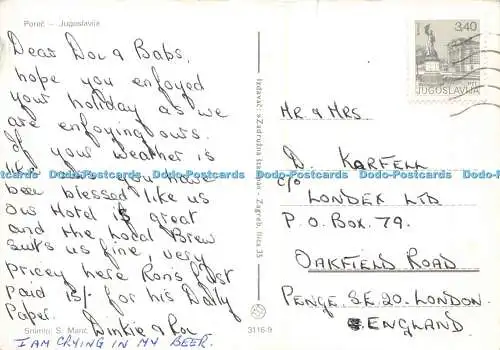 Poreč — Jugoslavija
Dear Doug & Babs,
hope you enjoyed
your holiday as we
are enjoying ours.
If your weather is
like ours you have
been blessed like us
Our Hotel is great
and the Local Brew
suits us fine, very
pricey here Ron's just
paid 15/- for his Daily
Paper. Dinkie & Ron
Snimio: S. Marić
I AM CRYING IN MY BEER.
3116-9
3.40
JUGOSLAVIJA
MR & MRS
D. KARFELL
C/O
LONDEX LTD
P.O. BOX. 79.
OAKFIELD ROAD
PENGE. S.E. 20. LONDON.
ENGLAND.
Dodo-Postcards.com Dodo-Postcards.com Dodo-Postcards.com Dodo-Postcards.com